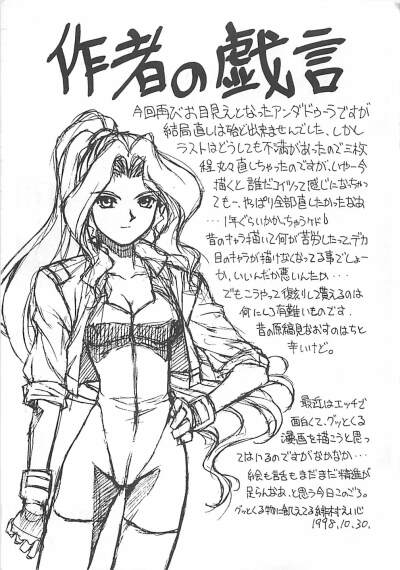 作者の戯言
今回再びお目見えとなったアンダドゥーラですが
結局直しは殆ど出来ませんでした、しかし
ラストはどうしても不満があったので三枚
程丸々直しちゃったのですが、いやー今
描くと誰だコイツって感じになっちゃっ
ても～、やっぱり全部直したかったなあ
…1年ぐらいかかっちゃうケド
昔のキャラ描いて何が苦労したってデカ
目のキャラが描けなくなってる事でしょー
か、いいんだか悪いんだか…
でもこうやって復刻して貰えるのは
何にしろ有難いものです。
昔の原稿見なおすのはちと
辛いけど。
最近はエッチで
面白くて、グッとくる
漫画を描こうと思っ
てはいるのですがなかなか…
絵も話もまだまだ精進が
足らんなあ、と思う今日このごろ。
グッとくる物に飢えてる綿木すえい心
1998.10.30.